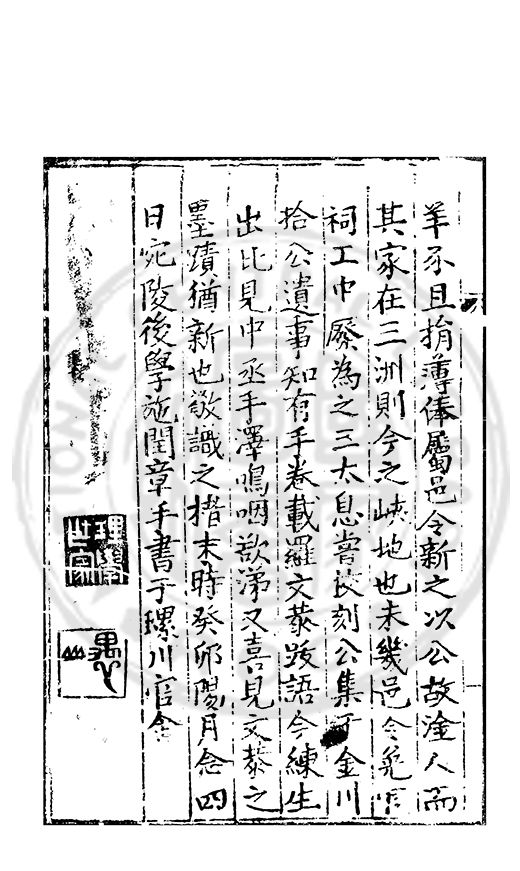 羊豕且捐薄俸屬邑令新之次公故淦人而
其家在三洲則今之峽地也未幾邑令冤
祠工中廢為之三太息嘗抆刻公集于金川
拾公遺事知有手卷載羅文恭跋語今練生
出比見中丞手澤鳴咽欲涕又喜見文恭之
墨蹟猶新也敬識之措末時癸卯陽月念四
日宛陵後學施閏章手書于螺川官舍
理學世家
愚山